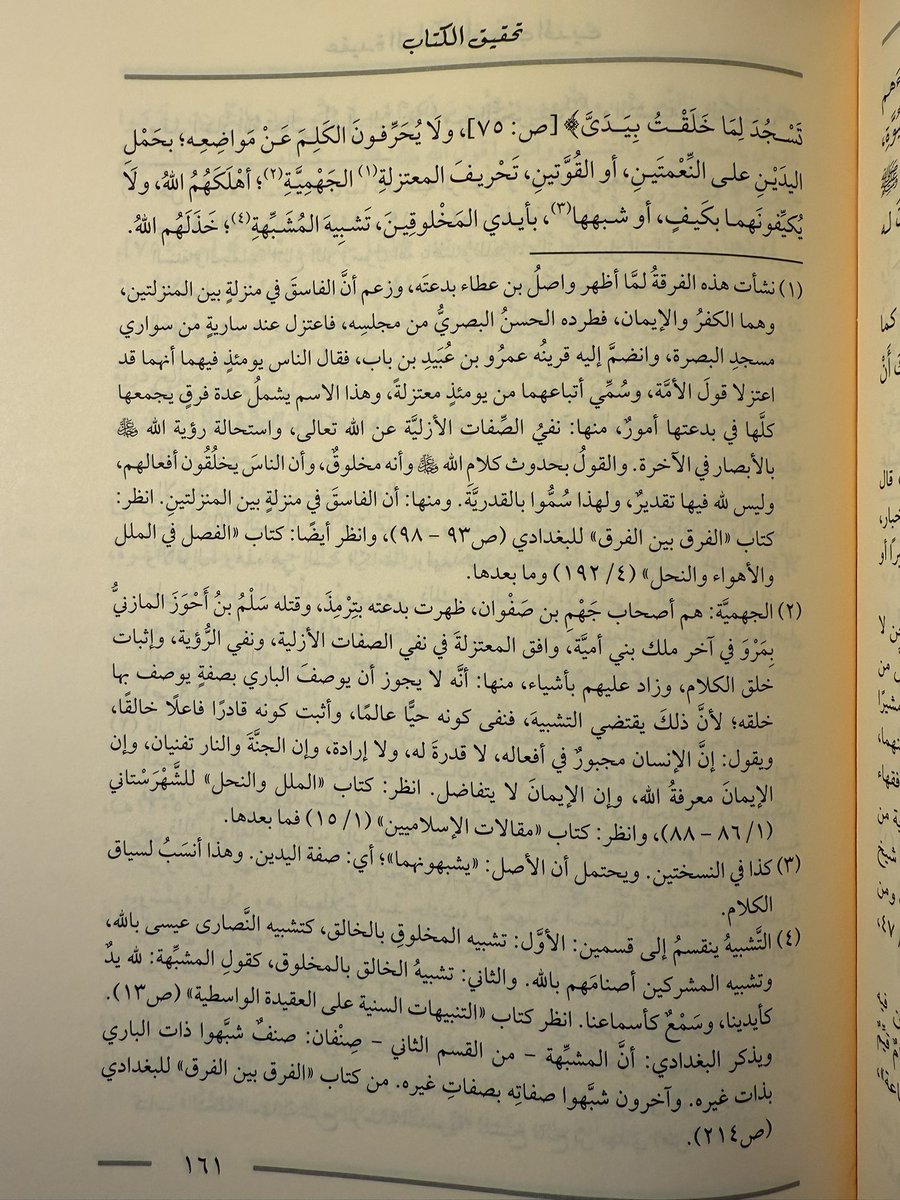 تحقيق الكتاب
تَسْجُدَ لِمَا خَلَقْتُ بِيَدَيَّ﴾ [ص: ٧٥]، ولَا يُحَرِّفونَ الكَلِمَ عَنْ مَواضِعِه؛ بحَمْلِ
اليدَيْنِ على النِّعْمتَينِ، أو القُوَّتينِ، تَحْريفَ المعتزلةِ(١) الجَهْميَّةِ(٢)؛ أهْلَكَهُمُ اللهُ، ولَا
يُكيِّفونَهما بكَيفٍ، أو شبهها(٣)، بأيدي المَخْلوقِينَ، تَشبِيهَ المُشَبِّهةِ(٤)؛ خَذَلَهُم اللهُ.
(١) نشأت هذه الفرقةُ لمَّا أظهر واصلُ بن عطاء بدعتَه، وزعم أنَّ الفاسقَ في منزلةٍ بين المنزلتين،
وهما الكفرُ والإيمان، فطرده الحسنُ البصريُّ من مجلسِه، فاعتزل عند ساريةٍ من سواري
مسجدِ البصرة، وانضمَّ إليه قرينُه عمرُو بن عُبَيدِ بن باب، فقال الناس يومئذٍ فيهما أنهما قد
اعتزلا قولَ الأمَّة، وسُمِّي أتباعهما من يومئذٍ معتزلةً، وهذا الاسم يشملُ عدة فرقٍ يجمعها
كلَّها في بدعتها أمورٌ، منها: نفيُ الصِّفات الأزليَّة عن الله تعالى، واستحالة رؤية الله ﷻ
بالأبصار في الآخرة. والقولُ بحدوث كلامِ الله ﷻ وأنه مخلوقٌ، وأن الناسَ يخلُقُون أفعالهم،
وليس لله فيها تقديرٌ، ولهذا سُمُّوا بالقدريَّةَ. ومنها: أن الفاسقَ في منزلةٍ بين المنزلتينِ. انظر:
كتاب «الفرق بين الفرق» للبغدادي (ص٩٣ - ٩٨)، وانظر أيضًا: كتاب «الفصل في الملل
والأهواء والنحل» (٤/ ١٩٢) وما بعدها.
(٢) الجهميَّة: هم أصحاب جَهْمِ بن صَفْوان، ظهرت بدعته بتِرْمِذَ، وقتله سَلْمُ بنُ أَحْوَزَ المازنيُّ
بِمَرْوَ في آخر ملك بني أميَّة، وافق المعتزلةَ في نفي الصفات الأزلية، ونفي الرُّؤية، وإثبات
خلق الكلام، وزاد عليهم بأشياء، منها: أنَّه لا يجوز أن يوصفَ الباري بصفةٍ يوصف بها
خلقه؛ لأنَّ ذلكَ يقتضي التشبيهَ، فنفى كونه حيًّا عالمًا، وأثبت كونه قادرًا فاعلًا خالقًا،
ويقول: إنَّ الإنسان مجبورٌ في أفعاله، لا قدرةَ له، ولا إرادة، وإن الجنَّةَ والنار تفنيان، وإن
الإيمانَ معرفةُ الله، وإن الإيمانَ لا يتفاضل. انظر: كتاب «الملل والنحل» للشَّهْرَسْتاني
(١/ ٨٦ - ٨٨)، وانظر: كتاب «مقالات الإسلاميين» (١/ ١٥) فما بعدها.
(٣) كذا في النسختين. ويحتمل أن الأصل: «يشبهونهما»؛ أي: صفة اليدين. وهذا أنسَبُ لسياق
الكلام.
(٤) التَّشبيهُ ينقسمُ إلى قسمين: الأوَّل: تشبيه المخلوقِ بالخالق، كتشبيه النَّصارى عيسى بالله،
وتشبيه المشركين أصنامَهم بالله. والثاني: تشبيهُ الخالق بالمخلوق، كقولِ المشبِّهة: لله يدٌ
كأيدينا، وسَمْعٌ كأسماعنا. انظر كتاب «التنبيهات السنية على العقيدة الواسطية» (ص١٣).
ويذكر البغدادي: أنَّ المشبِّهة - من القسم الثاني - صِنْفان: صنفٌ شبَّهوا ذات الباري
بذات غيره. وآخرون شبَّهوا صفاتِه بصفاتِ غيره. من كتاب «الفرق بين الفرق» للبغدادي
(ص٢١٤).
١٦١